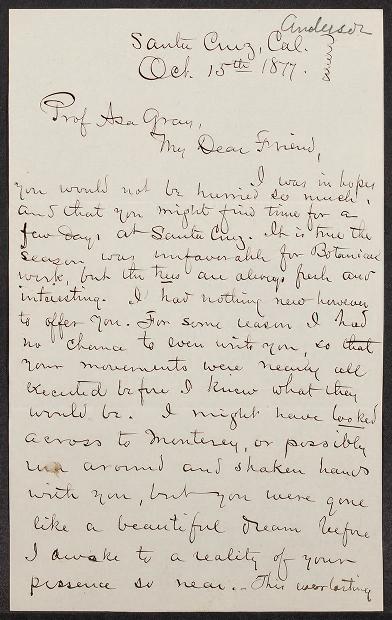 Anderson
Santa Cruz, Cal.
Oct. 15th 1877.
Prof Asa Gray,
My Dear Friend,
I was in hopes
you would not be hurried so much,
and that you might find time for a
few days at Santa Cruz. It is true the
season was unfavorable for Botanical
work, but the trees are always fresh and
interesting. I had nothing new however
to offer you. For some reason I had
no chance to even with you, so that
your movements were nearly all
executed before I knew what they
would be. I might have looked
across to Monterey, or possibly
run around and shaken hands
with you, but you were gone
like a beautiful dream before
I awoke to a reality of your
presence so near.. This everlasting